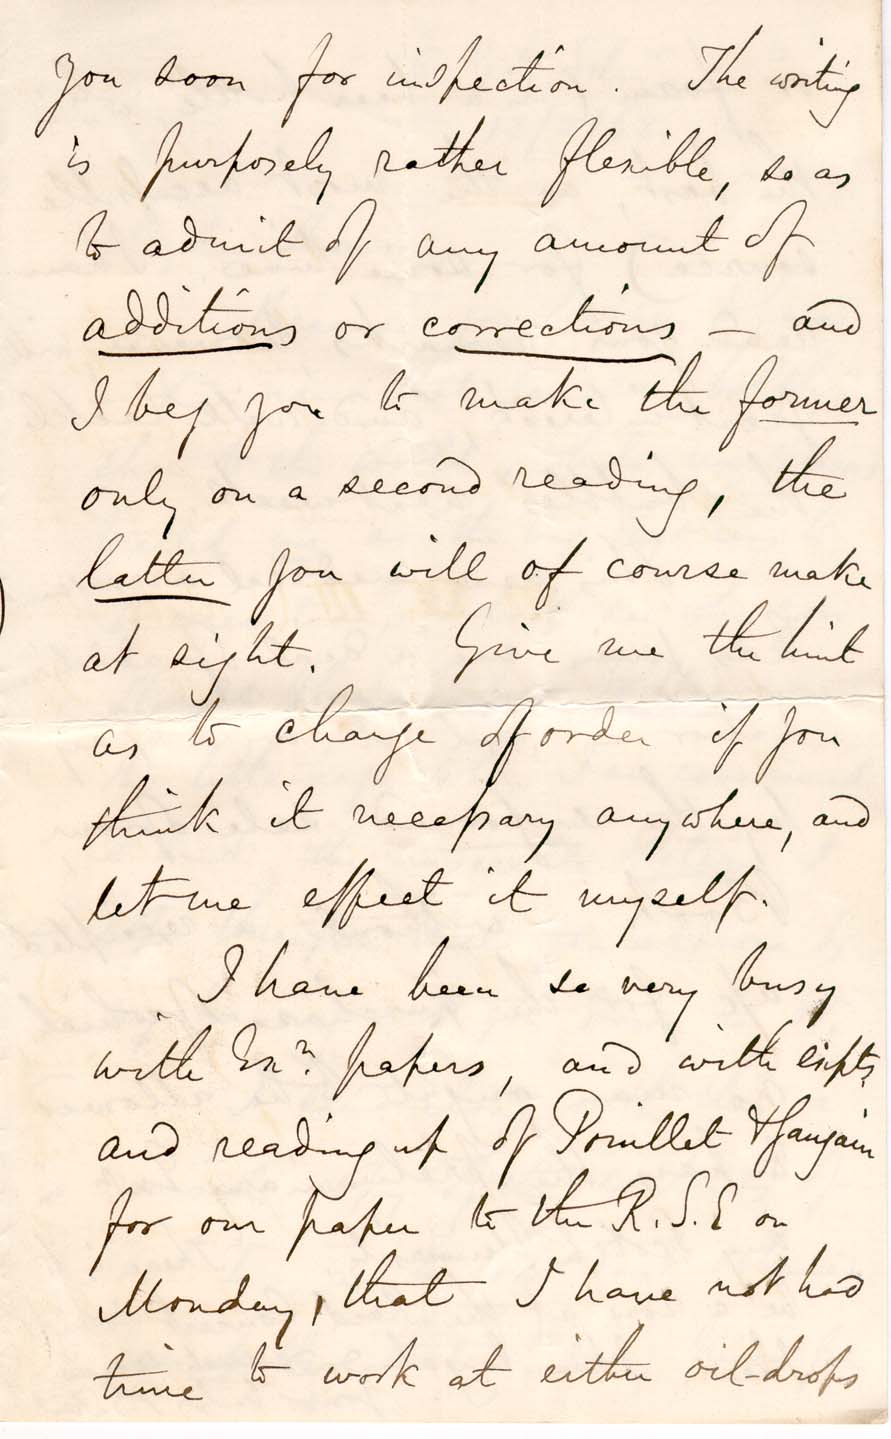 you soon for inspection. The writing
is purposely rather flexible, so as
to admit of any amount of
additions or corrections – and
I beg you to make the former
only on a second reading, the
latter you will of course make
at sight. Give me the hint
as to change of order if you
think it necessary anywhere, and
let me effect it myself.
I have been so very busy
with Exn. papers, and with expts,
and reading up of Pouillet & Gaugain
for our paper to the R.S.E on
Monday, that I have not had
time to work at either oil-drops